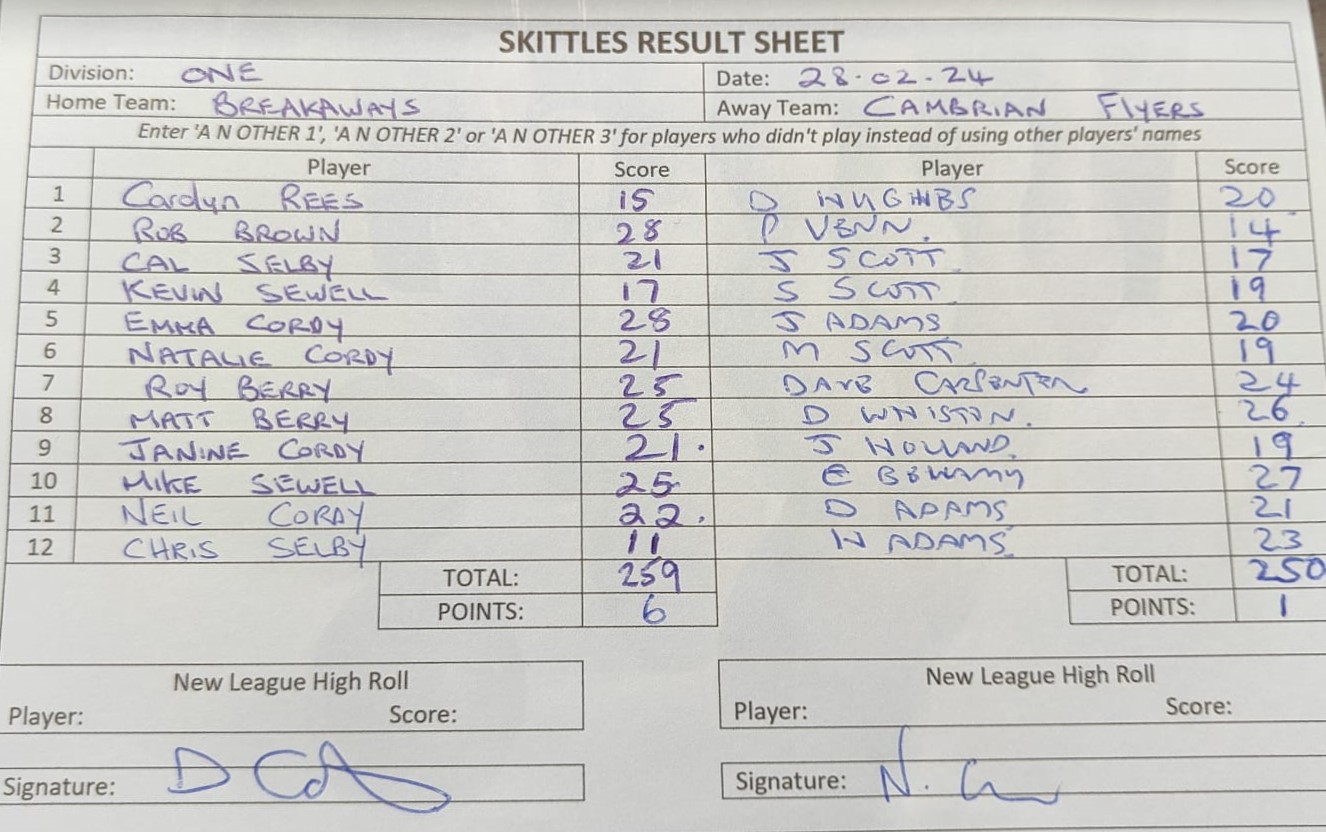 SKITTLES RESULT SHEET
Division: ONE Date: 28-02-24
Home Team: BREAKAWAYS Away Team: CAMBRIAN FLYERS
Enter 'A N OTHER 1', 'A N OTHER 2' or 'A N OTHER 3' for players who didn't play instead of using other players' names
Player Score Player Score
1 Carolyn REES 15 D HUGHES 20
2 ROB BROWN 28 P VENN. 14
3 CAL SELBY 21 J SCOTT 17
4 KEVIN SEWELL 17 S SCOTT 19
5 EMMA CORDY 28 J ADAMS 20
6 NATALIE CORDY 21 M SCOTT 19
7 ROY BERRY 25 DAVE CARPENTER 24
8 MATT BERRY 25 D WHISTON. 26
9 JANINE CORDY 21. J HOLLAND. 19
10 MIKE SEWELL 25 E BELLAMY 27
11 NEIL CORDY 22. D ADAMS 21
12 CHRIS SELBY 11 N ADAMS 23
TOTAL: 259 TOTAL: 250
POINTS: 6 POINTS: 1
New League High Roll New League High Roll
Player: Score: Player: Score:
Signature: Signature: